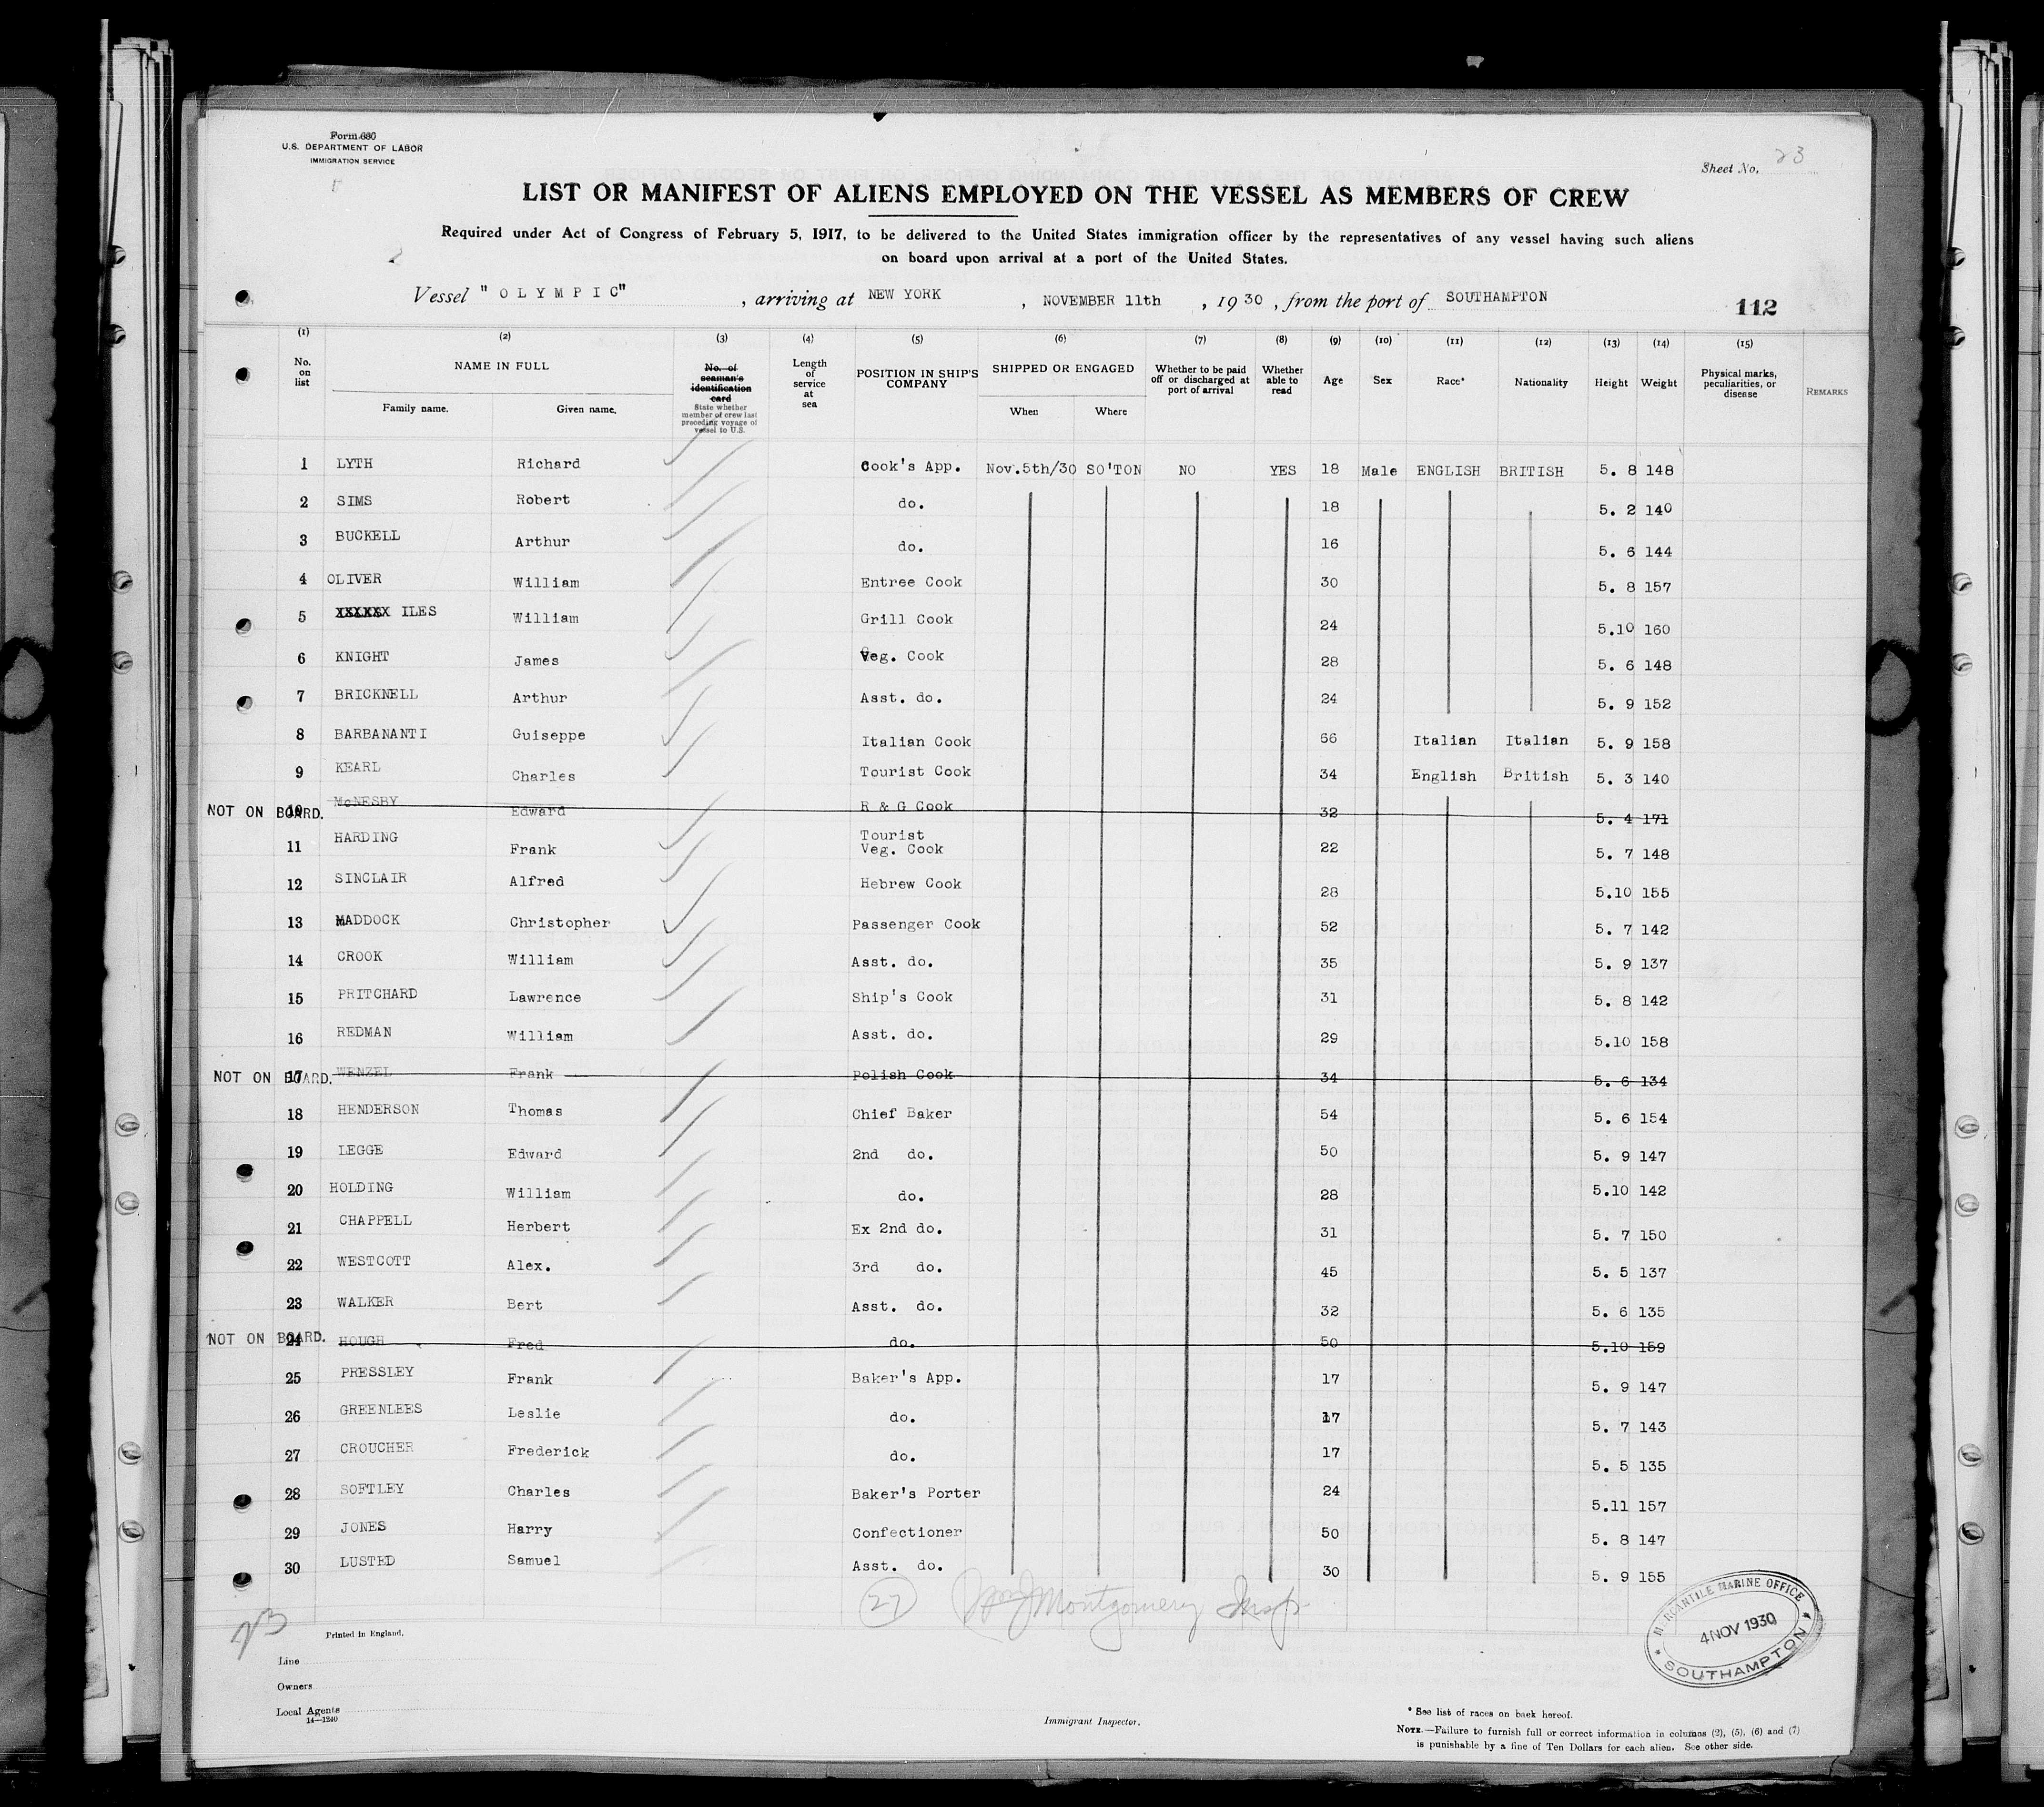 Form 680
U.S. DEPARTMENT OF LABOR
IMMIGRATION SERVICE
Sheet No. 23
LIST OR MANIFEST OF ALIENS EMPLOYED ON THE VESSEL AS MEMBERS OF CREW
Required under Act of Congress of February 5, 1917, to be delivered to the United States immigration officer by the representatives of any vessel having such aliens
on board upon arrival at a port of the United States.
Vessel "OLYMPIC", arriving at NEW YORK, NOVEMBER 11th, 1930, from the port of SOUTHAMPTON
112
(1) (2) (3) (4) (5) (6) (7) (8) (9) (10) (11) (12) (13) (14) (15)
No. on list NAME IN FULL Family name. Given name. No. of seaman's identification card State whether member of crew last preceding voyage of vessel to U.S. Length of service at sea POSITION IN SHIP'S COMPANY SHIPPED OR ENGAGED When Where Whether to be paid off or discharged at port of arrival Whether able to read Age Sex Race* Nationality Height Weight Physical marks, peculiarities, or disease REMARKS
1 LYTH Richard Cook's App. Nov.5th/30 SO'TON NO YES 18 Male ENGLISH BRITISH 5. 8 148
2 SIMS Robert do. 18 5. 2 140
3 BUCKELL Arthur do. 16 5. 6 144
4 OLIVER William Entree Cook 30 5. 8 157
5 XXXXXX ILES William Grill Cook 24 5.10 160
6 KNIGHT James Veg. Cook 28 5. 6 148
7 BRICKNELL Arthur Asst. do. 24 5. 9 152
8 BARBANANTI Guiseppe Italian Cook 66 Italian Italian 5. 9 158
9 KEARL Charles Tourist Cook 34 English British 5. 3 140
NOT ON BOARD. 10 McNESBY Edward R & G Cook 32 5. 4 171
11 HARDING Frank Tourist Veg. Cook 22 5. 7 148
12 SINCLAIR Alfred Hebrew Cook 28 5.10 155
13 MADDOCK Christopher Passenger Cook 52 5. 7 142
14 CROOK William Asst. do. 35 5. 9 137
15 PRITCHARD Lawrence Ship's Cook 31 5. 8 142
16 REDMAN William Asst. do. 29 5.10 158
NOT ON BOARD. 17 WENZEL Frank Polish Cook 34 5. 6 134
18 HENDERSON Thomas Chief Baker 54 5. 6 154
19 LEGGE Edward 2nd do. 50 5. 9 147
20 HOLDING William do. 28 5.10 142
21 CHAPPELL Herbert Ex 2nd do. 31 5. 7 150
22 WESTCOTT Alex. 3rd do. 45 5. 5 137
23 WALKER Bert Asst. do. 32 5. 6 135
NOT ON BOARD. 24 HOUGH Fred do. 50 5.10 159
25 PRESSLEY Frank Baker's App. 17 5. 9 147
26 GREENLEES Leslie do. 17 5. 7 143
27 CROUCHER Frederick do. 17 5. 5 135
28 SOFTLEY Charles Baker's Porter 24 5.11 157
29 JONES Harry Confectioner 50 5. 8 147
30 LUSTED Samuel Asst. do. 30 5. 9 155
27 Montgomery Insp.
Printed in England.
MERCANTILE MARINE OFFICE
4 NOV 1930
SOUTHAMPTON
Line
Owners
Local Agents
14—1240
Immigrant Inspector.
* See list of races on back hereof.
NOTE.—Failure to furnish full or correct information in columns (2), (5), (6) and (7)
is punishable by a fine of Ten Dollars for each alien. See other side.